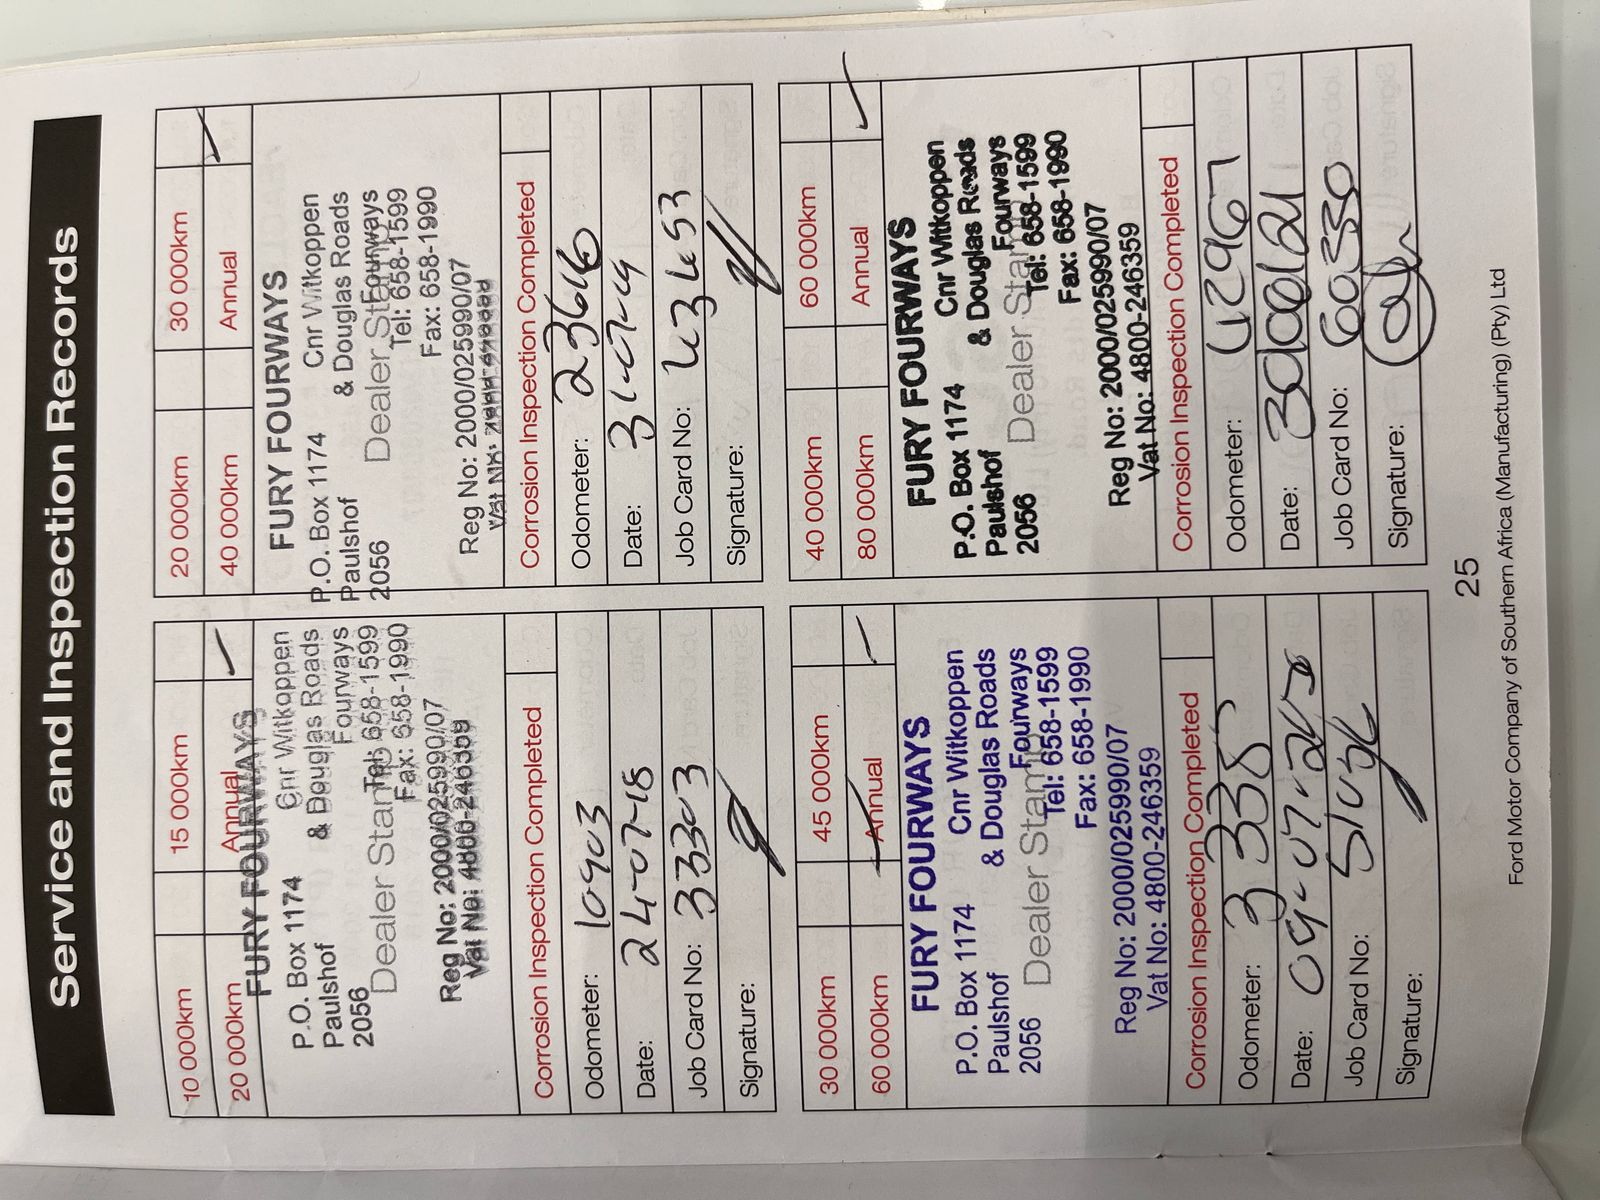 Service and Inspection Records
10 000km 15 000km
20 000km Annual
FURY FOURWAYS
P.O. Box 1174 Cnr Witkoppen
Paulshof & Douglas Roads
2056 Fourways
Dealer Stamp
Tel: 658-1599
Fax: 658-1990
Reg No: 2000/025990/07
Vat No: 4800-246359
Corrosion Inspection Completed
Odometer: 10903
Date: 24-07-18
Job Card No: 33303
Signature:
20 000km 30 000km
40 000km Annual
FURY FOURWAYS
P.O. Box 1174 Cnr Witkoppen
Paulshof & Douglas Roads
2056 Fourways
Dealer Stamp
Tel: 658-1599
Fax: 658-1990
Reg No: 2000/025990/07
Vat
Corrosion Inspection Completed
Odometer: 23646
Date:
Job Card No:
Signature:
30 000km 45 000km
60 000km Annual
FURY FOURWAYS
P.O. Box 1174 Cnr Witkoppen
Paulshof & Douglas Roads
2056 Fourways
Dealer Stamp
Tel: 658-1599
Fax: 658-1990
Reg No: 2000/025990/07
Vat No: 4800-246359
Corrosion Inspection Completed
Odometer:
Date:
Job Card No:
Signature:
40 000km 60 000km
80 000km Annual
FURY FOURWAYS
P.O. Box 1174 Cnr Witkoppen
Paulshof & Douglas Roads
2056 Fourways
Dealer Stamp
Tel: 658-1599
Fax: 658-1990
Reg No: 2000/025990/07
Vat No: 4800-246359
Corrosion Inspection Completed
Odometer:
Date:
Job Card No: 60330
Signature:
25
Ford Motor Company of Southern Africa (Manufacturing) (Pty) Ltd